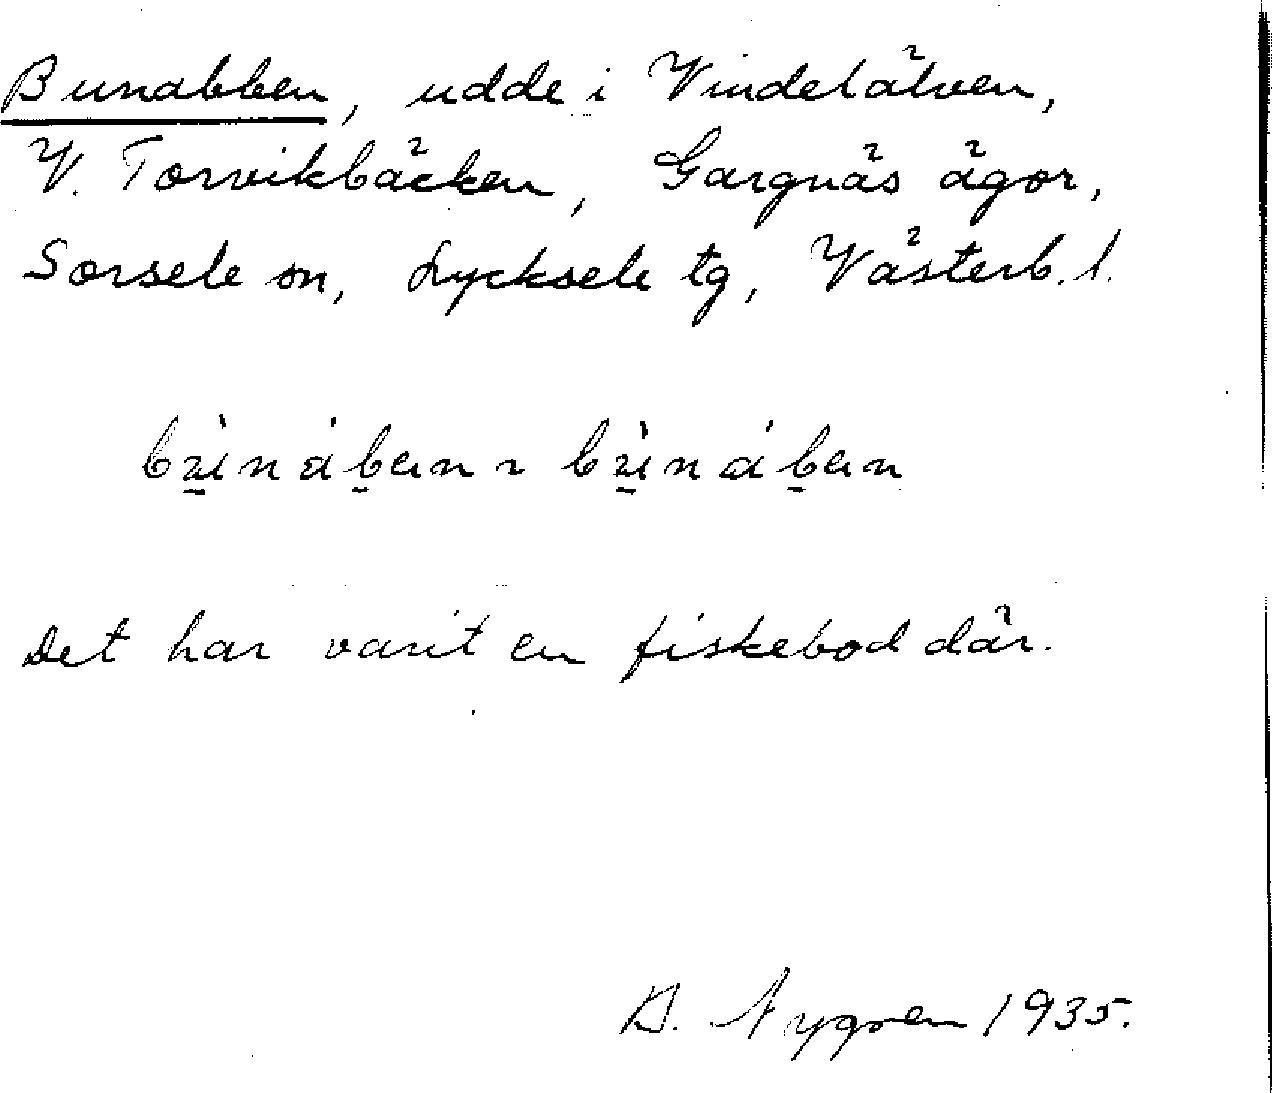 Bunabben, udde i Vindelälven,
V. Torvikbäcken, Gargnäs ägor,
Sorsele sn, Lycksele tg, Västerb. l.
Det har varit en fiskebod där.
Nygren 1935.